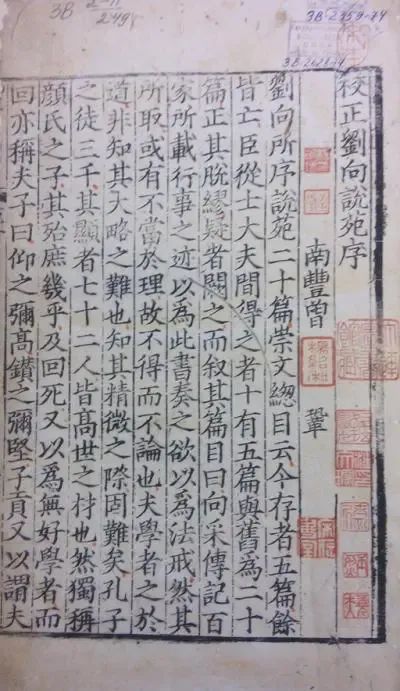 校正劉向說苑序
南豐曾鞏
劉向所序說苑二十篇崇文總目云今存者五篇餘
皆亡臣從士大夫間得之者十有五篇與舊為二十
篇正其脫繆疑者闕之而叙其篇目曰向采傳記百
家所載行事之迹以為此書奏之欲以為法戒然其
所取或有不當於理故不得而不論也夫學者之於
道非知其大略之難也知其精微之際固難矣孔子
之徒三千其顯者七十二人皆高世之材也然獨稱
顏氏之子其殆庶幾乎及回死又以為無好學者而
回亦稱夫子曰仰之彌高鑽之彌堅子貢又以謂夫